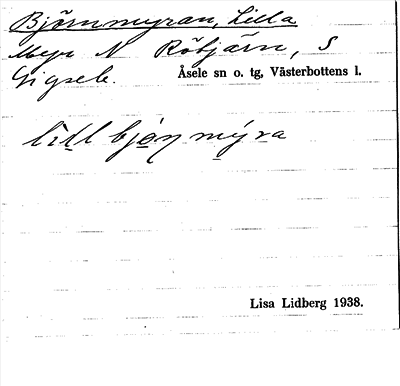 Björnmyran, Lilla
Myr N Röbjärn, S
Gigsele.
Åsele sn o. tg, Västerbottens l.
lidl bjən mýra
Lisa Lidberg 1938.